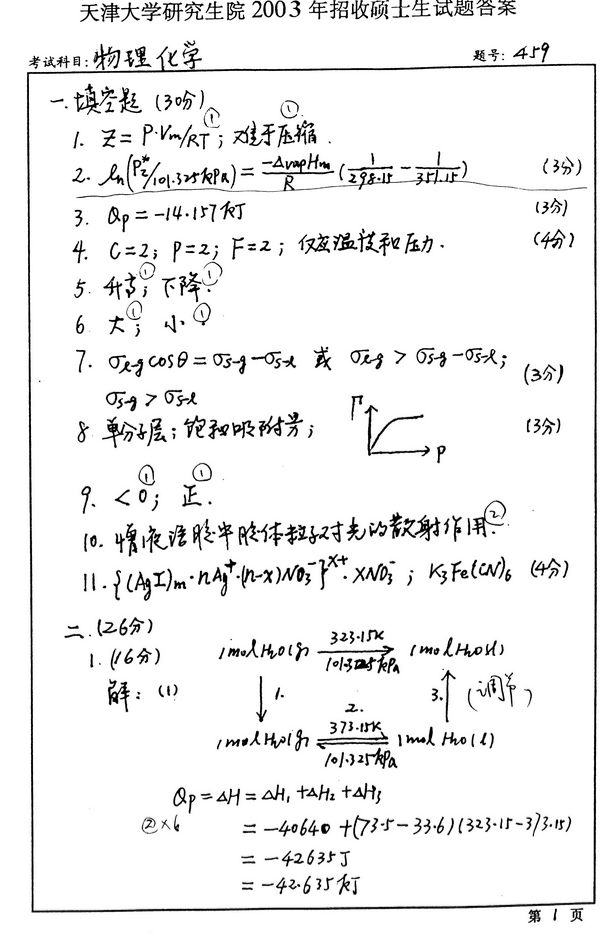 天津大学研究生院 2003 年招收硕士生试题答案
考试科目: 物理化学 题号: 459
一.填空题 (30分)
1. Z = P·Vm/RT ① ; 难于压缩 ① .
2. ln(P₂*/101.325kPa) = -ΔvapHm/R (1/298.15 - 1/351.15) (3分)
3. Qp = -14.157kJ (3分)
4. C=2; P=2; F=2; 仅为温度和压力. (4分)
5. 升高 ① ; 下降 ① .
6 大 ① ; 小 ①
7. σl-g cosθ = σs-g - σs-l 或 σl-g > σs-g - σs-l;
σs-g > σs-l (3分)
8. 单分子层; 饱和吸附量; Γ P (3分)
9. <0 ① ; 正 ① .
10. 憎液溶胶中胶体粒子对光的散射作用 ② .
11. {(AgI)m·nAg⁺·(n-x)NO₃⁻}ˣ⁺·xNO₃⁻ ; K₃Fe(CN)₆ (4分)
二.(26分)
1. (16分) 1mol H₂O(g) 323.15K 101.325kPa 1mol H₂O(l)
解: (1) 1. 3. (调节)
2.
1mol H₂O(g) 373.15K 101.325kPa 1mol H₂O(l)
Qp = ΔH = ΔH₁ + ΔH₂ + ΔH₃
②×6 = -40640 + (73.5 - 33.6)(323.15 - 373.15)
= -42635J
= -42.635kJ
第 1 页